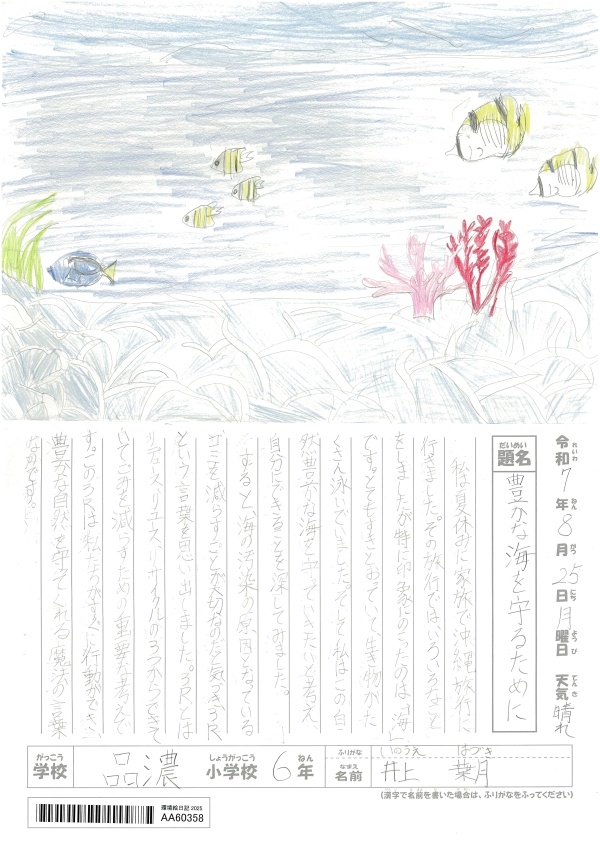 令和7年8月25日月曜日 天気晴れ
れいわ ねん がつ にち ようび てんき
題名 豊かな海を守るために
だいめい
私は夏休みに家族で沖縄旅行に
行きました。その旅行ではいろいろなこと
をしましたが特に印象にのこったのは「海」
です。とてもすきとおっていて、生き物がた
くさん泳いでいました。そして私はこの自
然豊かな海を守っていきたいと考え
自分にできることを探してみました。
すると、海の汚染の原因となっている
ゴミを減らすことが大切なのだと気づき3R
という言葉を思い出しました。3Rとは
リデュース、リユース、リサイクルの3つからできて
いてごみを減らすための重要な考えで
す。この3Rは私たちがすぐに行動ができ、
豊かな自然を守ってくれる魔法の言葉
なのです。
がっこう しょうがっこう ねん ふりがな いのうえ はづき
学校 品濃 小学校 6年 なまえ 名前 井上 葉月
(漢字で名前を書いた場合は、ふりがなをふってください)
環境絵日記 2025
AA60358